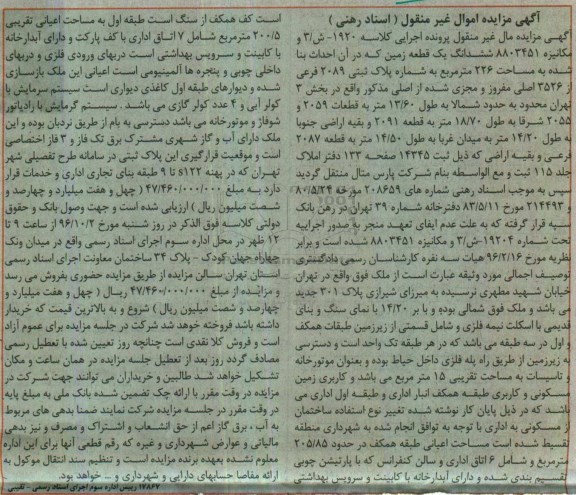 آگهی مزایده اموال غیر منقول ( اسناد رهنی )
آگهی مزایده مال غیر منقول پرونده اجرایی کلاسه ۱۹۲۰- ش/۳ و
مکانیزه ۸۸۰۳۴۵۱ ششدانگ یک قطعه زمین که در آن احداث بنا
شده به مساحت ۲۲۶ مترمربع به شماره پلاک ثبتی ۲۰۸۹ فرعی
از ۳۵۲۶ اصلی مفروز و مجزی شده از اصلی مذکور واقع در بخش ۳
تهران محدود به حدود شمالا به طول ۱۳/۶۰ متر به قطعات ۲۰۵۹ و
۲۰۵۵ شرقا به طول ۱۸/۷۰ متر به قطعه ۲۰۹۱ و بقیه اراضی جنوبا
به طول ۱۴/۲۰ متر به میدان غربا به طول ۱۴/۵۰ متر به قطعه ۲۰۸۷
فرعی و بقیه اراضی که ذیل ثبت ۱۴۳۴۵ صفحه ۱۳۳ دفتر املاک
جلد ۱۱۵ ثبت و مع الواسطه بنام شرکت پارس متال منتقل گردید
سپس به موجب اسناد رهنی شماره های ۲۰۸۶۵۹ مورخه ۸۰/۵/۲۴
و ۲۱۴۴۹۳ مورخ ۸۳/۵/۱۱ دفترخانه شماره ۳۹ تهران در رهن بانک
سپه قرار گرفته که به علت عدم ایفای تعهد منجر به صدور اجراییه
تحت شماره ۱۹۲۰۴-ش/۳ و مکانیزه ۸۸۰۳۴۵۱ شده است و برابر
نظریه مورخ ۹۶/۲/۱۶ هیات سه نفره کارشناسان رسمی دادگستری
توصیف اجمالی مورد وثیقه عبارت است از ملک فوق واقع در تهران
خیابان شهید مطهری نرسیده به میرزای شیرازی پلاک ۳۰۱ جدید
می باشد و ملک فوق شمالی بوده و با بر ۱۴/۲۰ با نمای سنگ و بنای
قدیمی با اسکلت نیمه فلزی و شامل قسمتی از زیرزمین طبقات همکف
و اول در سه طبقه می باشد که در هر طبقه تک واحد است و دسترسی
به زیرزمین از طریق راه پله فلزی داخل حیاط بوده و بعنوان موتورخانه
و تاسیسات به مساحت تقریبی ۱۵ متر مربع می باشد و کاربری زمین
مسکونی و کاربری طبقه همکف انبار اداری و طبقه اول اداری می
باشد که در ذیل پایان کار نوشته شده تغییر نوع استفاده ساختمان
از مسکونی به اداری با توجه به توافق انجام شده به شهرداری منطقه
تقسیط شده است مساحت اعیانی طبقه همکف در حدود ۲۰۵/۸۵
مترمربع و شامل ۶ اتاق اداری و سالن کنفرانس که با پارتیشن چوبی
تقسیم بندی شده و دارای آبدارخانه با کابینت و سرویس بهداشتی
است کف همکف از سنگ است طبقه اول به مساحت اعیانی تقریبی
۲۰۰/۵ مترمربع شامل ۷ اتاق اداری با کف پارکت و دارای آبدارخانه
با کابینت و سرویس بهداشتی است دربهای ورودی فلزی و دربهای
داخلی چوبی و پنجره ها آلمینیومی است اعیانی این ملک بازسازی
شده و دیوارهای طبقه اول کاغذی دیواری است سیستم سرمایش با
کولر آبی و ۴ عدد کولر گازی می باشد . سیستم گرمایش با رادیاتور
شوفاژ و موتورخانه می باشد دسترسی به بام از طریق نردبان بوده و این
ملک دارای آب و گاز شهری مشترک برق تک فاز و ۳ فاز اختصاصی
است و موقعیت قرارگیری این پلاک ثبتی در سامانه طرح تفصیلی شهر
تهران که در پهنه s۱۲۲ تا ۹ طبقه بنای تجاری اداری و خدمات قرار
دارد به مبلغ ۴۷/۴۶۰/۰۰۰/۰۰۰ ( چهل و هفت میلیارد و چهارصد و
شصت میلیون ریال ) ارزیابی شده است و جهت وصول بانک و حقوق
دولتی کلاسه فوق الذکر در روز شنبه مورخ ۹۶/۱۰/۲ از ساعت ۹ تا
۱۲ ظهر در محل اداره سوم اجرای اسناد رسمی واقع در میدان ونک
چهارراه جهان کودک - پلاک ۳۴ ساختمان معاونت اجرای اسناد رسمی
استان تهران سالن مزایده از طریق مزایده حضوری بفروش می رسد
و مزایده از مبلغ ۴۷/۴۶۰/۰۰۰/۰۰۰ ریال ( چهل و هفت میلیارد و
چهارصد و شصت میلیون ریال ) شروع و به بالاترین قیمت که خریدار
داشته باشد فروخته خواهد شد شرکت در جلسه مزایده برای عموم آزاد
است و فروش کلا نقدی است چنانچه روز تعیین شده با تعطیل رسمی
مصادف گردد روز بعد از تعطیل جلسه مزایده در همان ساعت و مکان
تشکیل خواهد شد طالبین و خریداران می توانند جهت شرکت در
مزایده در وقت مقرر با ارائه چک تضمین شده بانک ملی به مبلغ پایه
در وقت مقرر در جلسه مزایده شرکت نمایند ضمنا بدهی های مربوط
به آب ، برق گاز اعم از حق انشعاب و اشتراک و مصرف و نیز بدهی
مالیاتی و عوارض شهرداری و غیره که رقم قطعی آنها برای این اداره
معلوم نشده بعهده برنده مزایده است و تنظیم سند انتقال موکول به
ارائه مفاصا حسابهای دارایی و شهرداری و ... خواهد بود.
۱۷۸۶۷ رییس اداره سوم اجرای اسناد رسمی - نقیبی